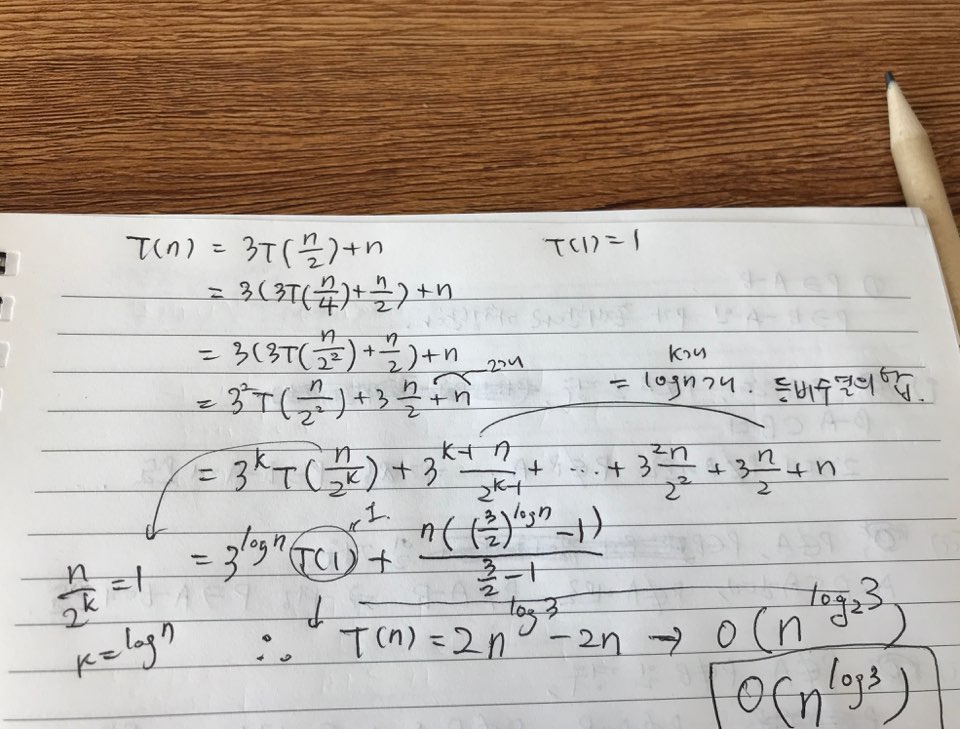 T(n) = 3T(n/2)+n T(1)=1
= 3(3T(n/4)+n/2)+n
= 3(3T(n/2²)+n/2)+n
= 3²T(n/2²)+3 n/2 +n 2개 k개 = logn개. 등비수열의 합.
= 3^k T(n/2^k) + 3^(k-1) n/2^(k-1) + ... + 3² n/2² + 3 n/2 + n
= 3^logn T(1) + n((3/2)^logn -1) / (3/2 -1) 1.
n/2^k = 1
k=logn ∴ T(n) = 2n^log3 -2n → O(n^log₂3)
O(n^log3)